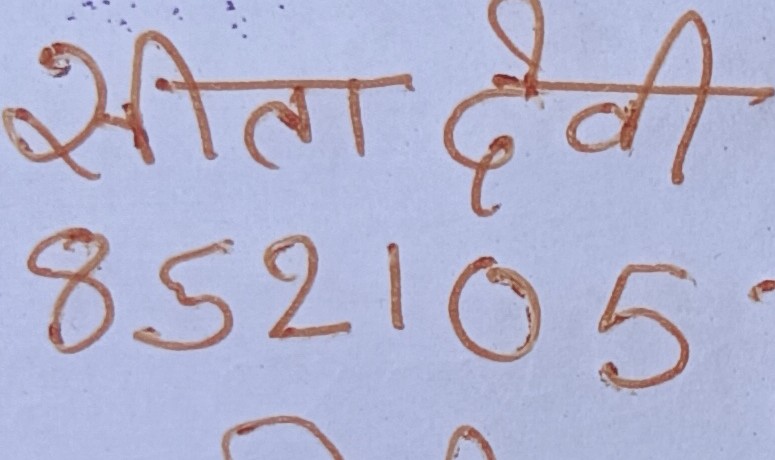 सीता देवी
852105